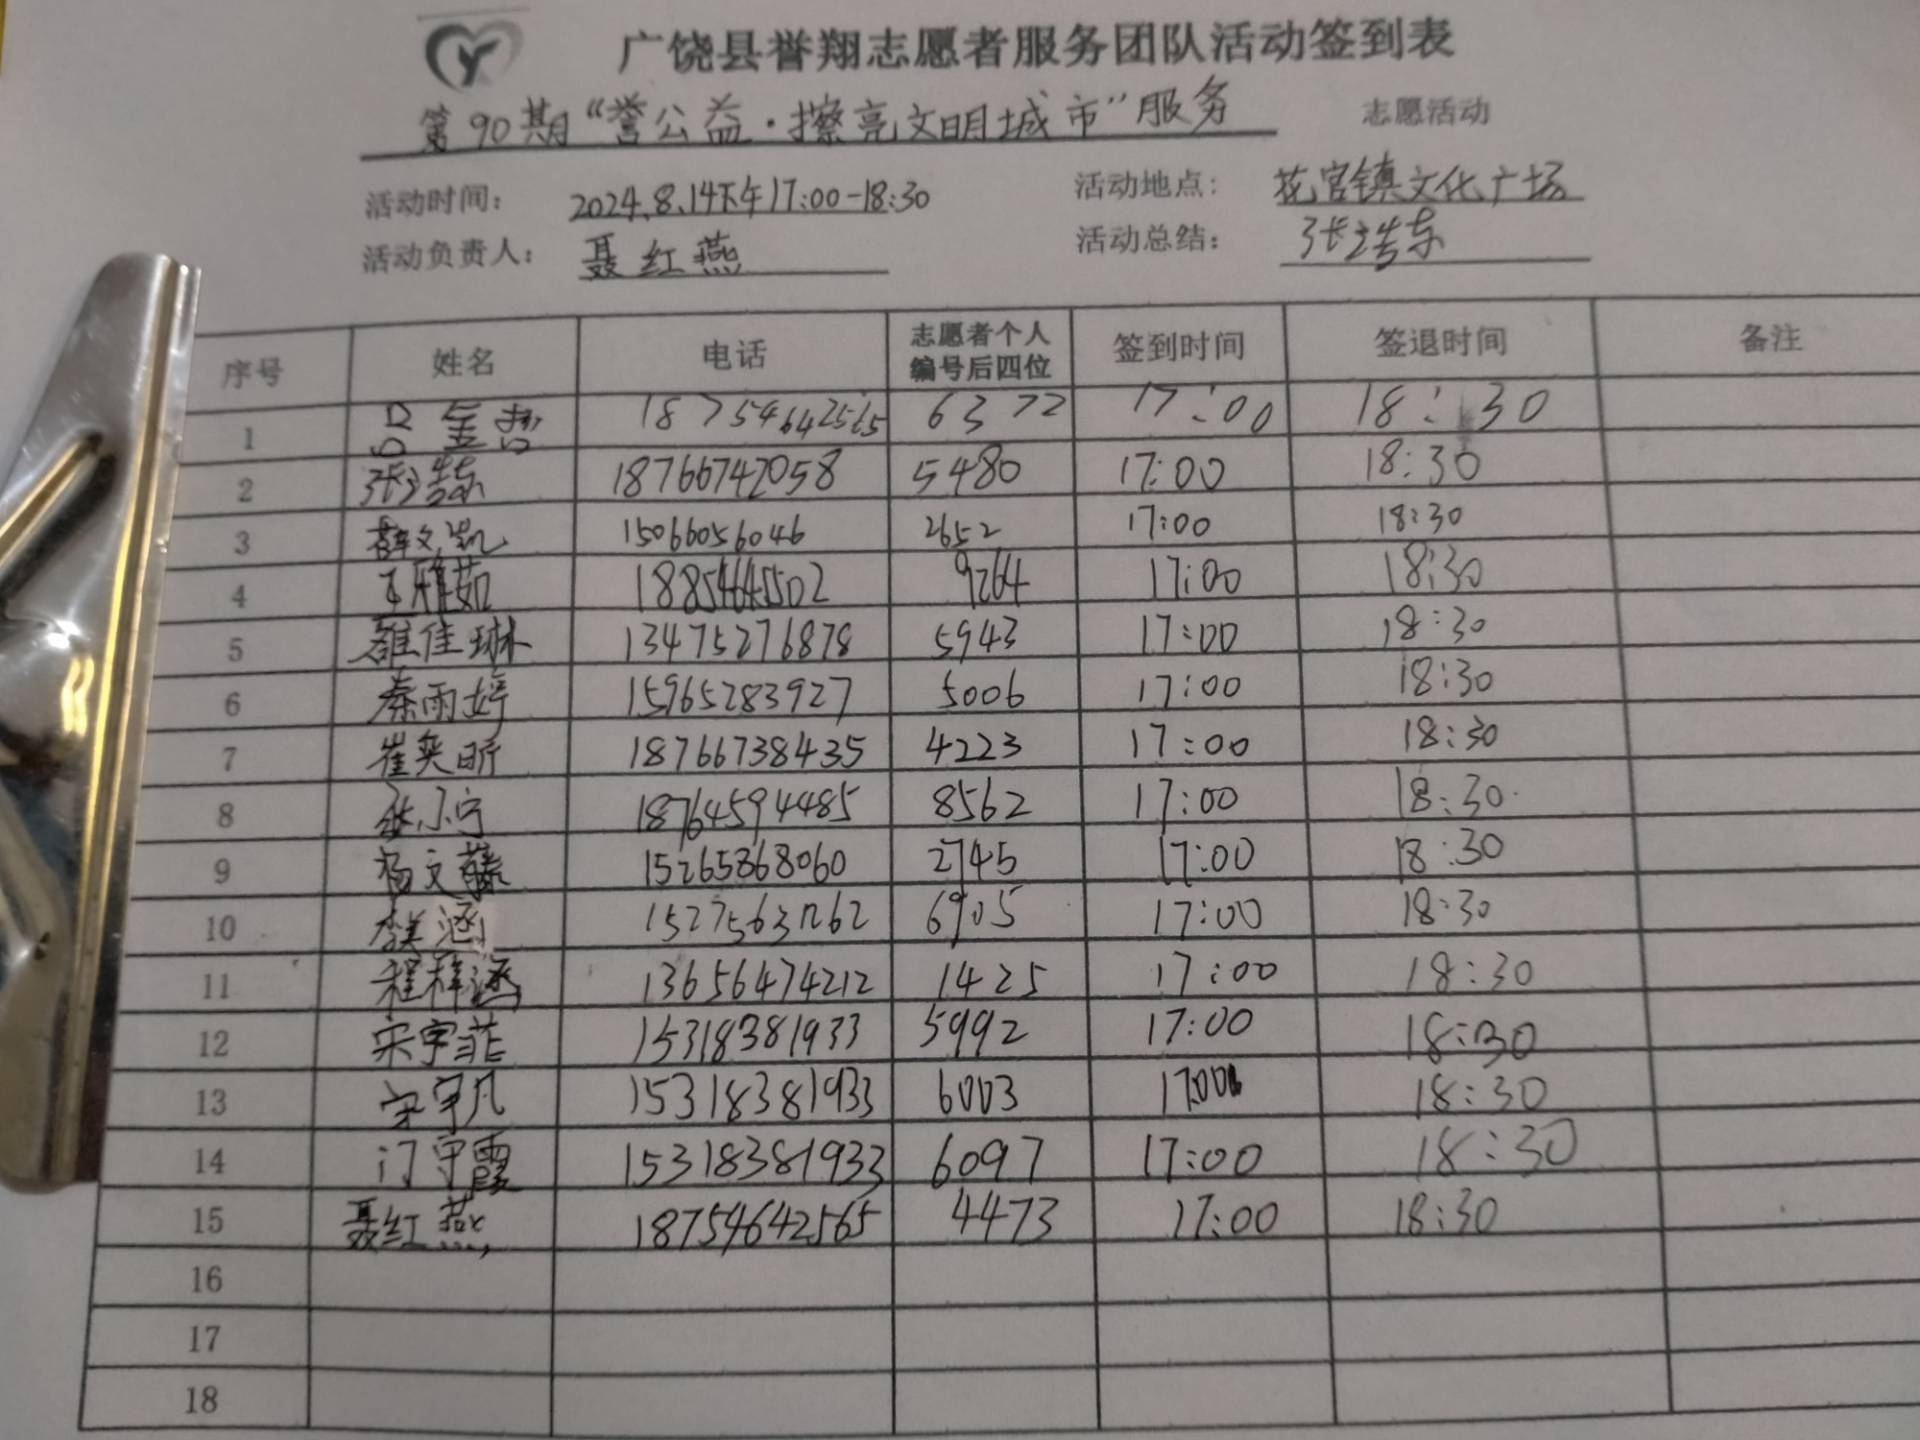 广饶县誉翔志愿者服务团队活动签到表
第90期“誉公益·擦亮文明城市”服务 志愿活动
活动时间： 2024.8.14下午17:00-18:30 活动地点： 花官镇文化广场
活动负责人： 聂红燕 活动总结： 张浩东
序号 姓名 电话 志愿者个人编号后四位 签到时间 签退时间 备注
1 吕金哲 18754642565 6372 17:00 18:30
2 张浩东 18766742058 5480 17:00 18:30
3 薛文凯 15066056046 2652 17:00 18:30
4 王雅茹 18854645502 9264 17:00 18:30
5 雒佳琳 13475276878 5943 17:00 18:30
6 秦雨婷 15965283927 5006 17:00 18:30
7 崔奕昕 18766738435 4223 17:00 18:30
8 18764594485 8562 17:00 18:30
9 杨文 15265868060 2745 17:00 18:30
10 15275631262 6905 17:00 18:30
11 程梓涵 13656474212 1425 17:00 18:30
12 宋宇菲 15318381933 5992 17:00 18:30
13 宋宇凡 15318381933 6003 17:00 18:30
14 门守霞 15318381933 6097 17:00 18:30
15 聂红燕 18754642565 4473 17:00 18:30
16
17
18